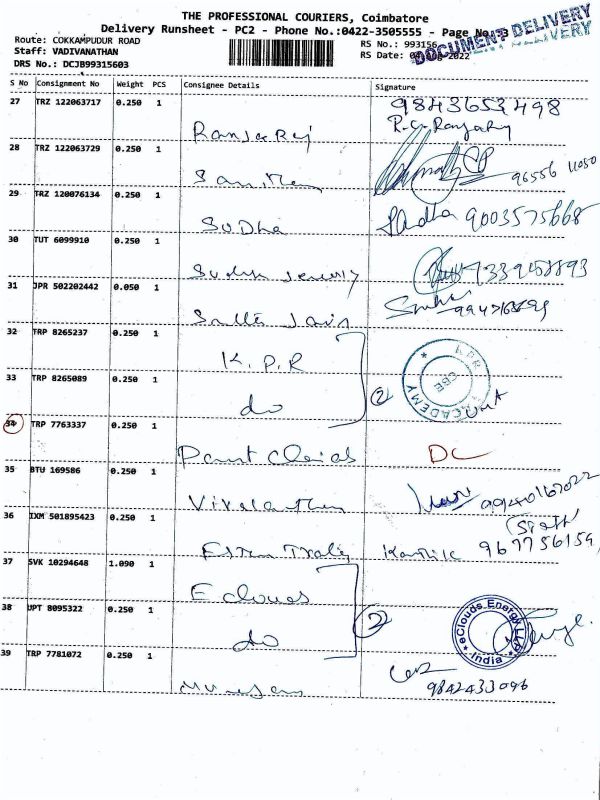 THE PROFESSIONAL COURIERS, Coimbatore
Delivery Runsheet - PC2 - Phone No.:0422-3505555 - Page No. 3
DOCUMENT DELIVERY
Route: COKKAMPUDUR ROAD
RS No.: 993156
Staff: VADIVANATHAN
RS Date: 04 Aug 2022
DRS No.: DCJB99315603
S No Consignment No Weight PCS Consignee Details Signature
27 TRZ 122063717 0.250 1
9843653498
28 TRZ 122063729 0.250 1
96556 11050
29 TRZ 120076134 0.250 1
Sudha Sudha 9003575668
30 TUT 6099910 0.250 1
31 JPR 502202442 0.050 1
32 TRP 8265237 0.250 1
K.P.R
KPR ACADEMY CBE
33 TRP 8265089 0.250 1
do 2
34 TRP 7763337 0.250 1
DC
35 BTU 169586 0.250 1
36 IXM 501895423 0.250 1
Karthik 967756159
37 SVK 10294648 1.090 1
E clouds
38 UPT 8095322 0.250 1
do 2
eClouds Energy LLP India
39 TRP 7781072 0.250 1
Murugan 9842433096